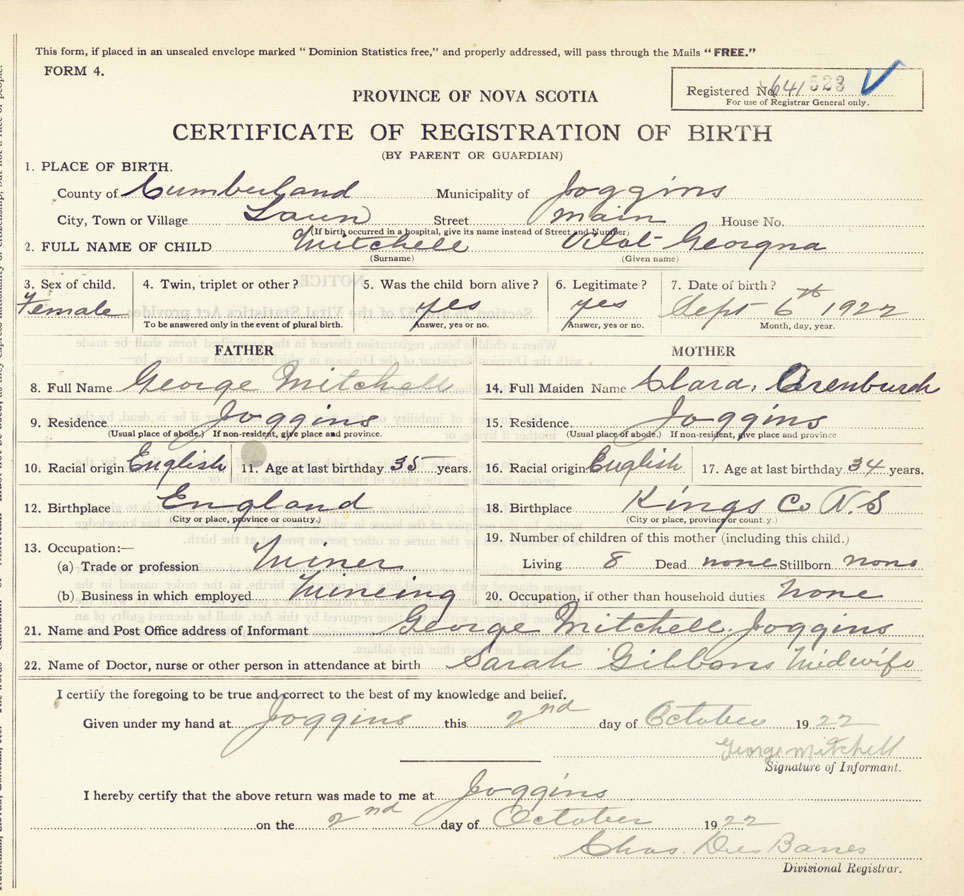 This form, if placed in an unsealed envelope marked "Dominion Statistics free," and properly addressed, will pass through the Mails "FREE."
FORM 4.
Registered No. 641523
For use of Registrar General only.
PROVINCE OF NOVA SCOTIA
CERTIFICATE OF REGISTRATION OF BIRTH
(BY PARENT OR GUARDIAN)
1. PLACE OF BIRTH.
County of Cumberland Municipality of Joggins
City, Town or Village Town Street Main House No.
(If birth occurred in a hospital, give its name instead of Street and Number)
2. FULL NAME OF CHILD Mitchell Georgna
(Surname) (Given name)
3. Sex of child. 4. Twin, triplet or other? 5. Was the child born alive? 6. Legitimate? 7. Date of birth?
Female yes yes Sept 6th 1922
To be answered only in the event of plural birth. Answer, yes or no. Answer, yes or no. Month, day, year.
FATHER MOTHER
8. Full Name George Mitchell 14. Full Maiden Name Clara,
9. Residence Joggins 15. Residence. Joggins
(Usual place of abode.) If non-resident, give place and province. (Usual place of abode.) If non-resident, give place and province
10. Racial origin English 11. Age at last birthday 35 years. 16. Racial origin English 17. Age at last birthday 34 years.
12. Birthplace England 18. Birthplace Kings Co N.S
(City or place, province or country.) (City or place, province or country.)
13. Occupation:— 19. Number of children of this mother (including this child.)
(a) Trade or profession Miner Living 8 Dead none Stillborn none
(b) Business in which employed Mineing 20. Occupation, if other than household duties None
21. Name and Post Office address of Informant George Mitchell. Joggins
22. Name of Doctor, nurse or other person in attendance at birth Sarah Gibbons Midwife
I certify the foregoing to be true and correct to the best of my knowledge and belief.
Given under my hand at Joggins this 2nd day of October 1922
George Mitchell
Signature of Informant.
I hereby certify that the above return was made to me at Joggins
on the 2nd day of October 1922
Chas. Des Barres
Divisional Registrar.